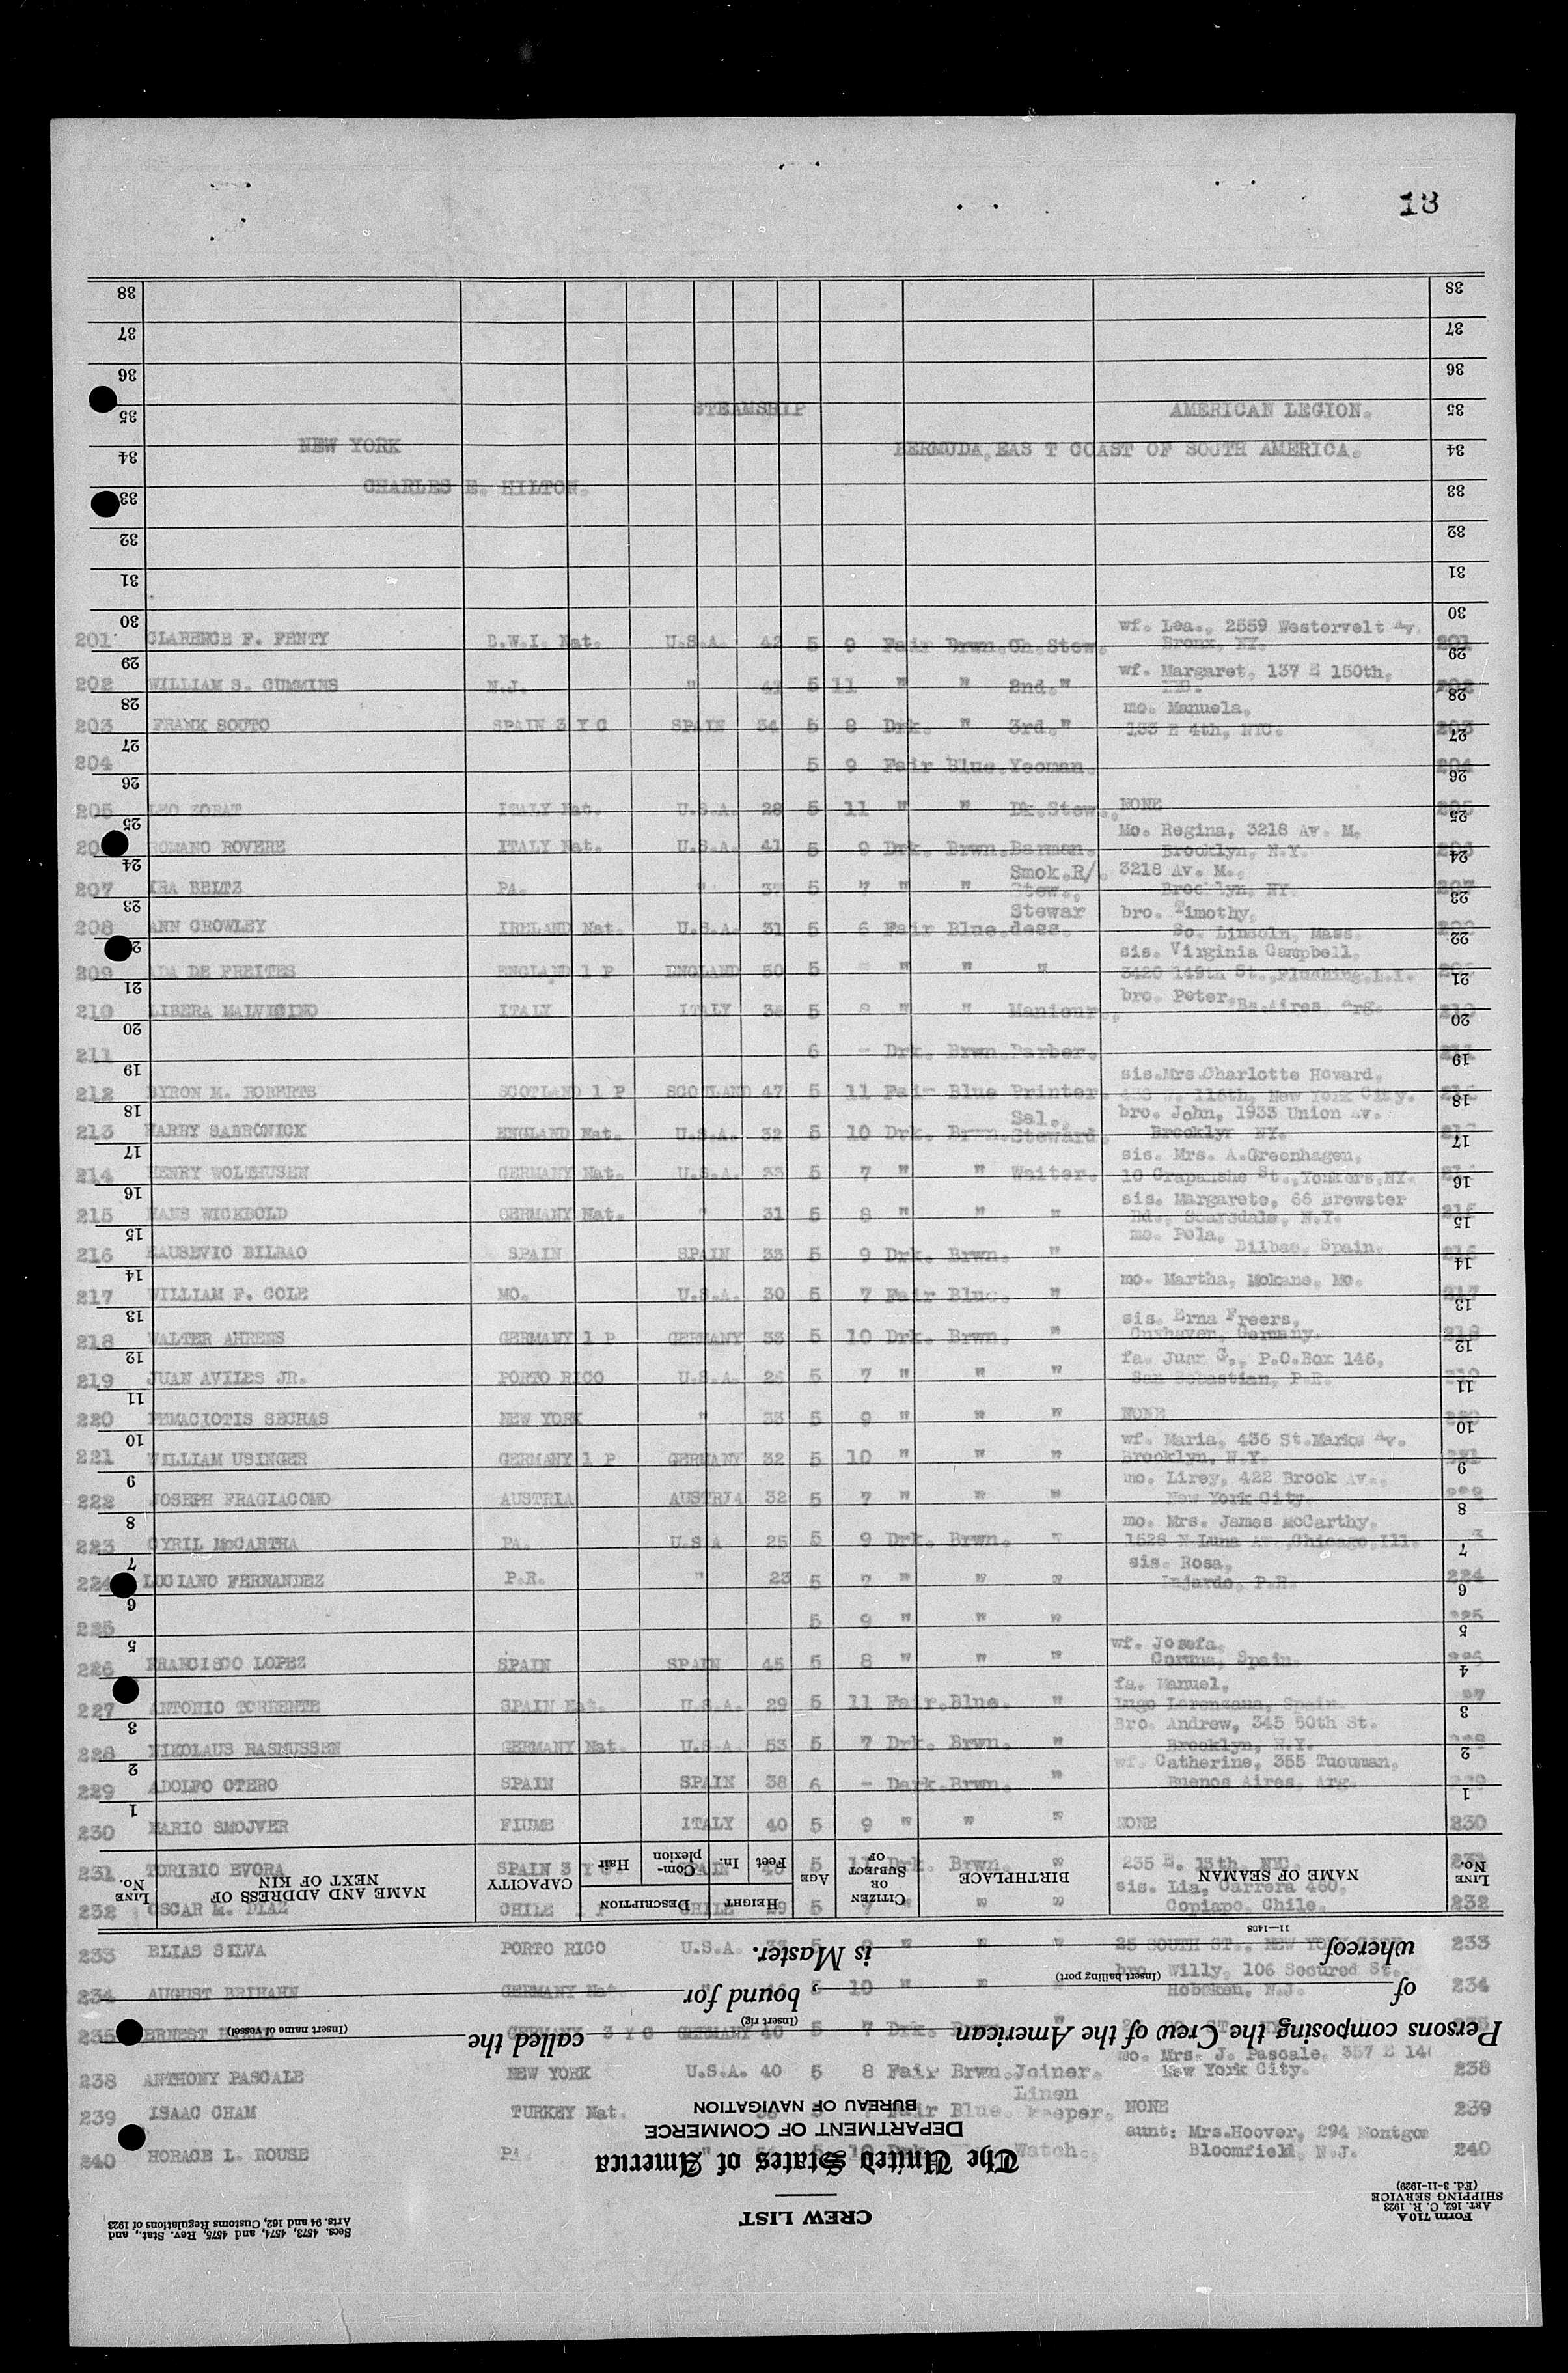 13
STEAMSHIP AMERICAN LEGION.
NEW YORK BERMUDA, EAS T COAST OF SOUTH AMERICA.
CHARLES E. HILTON.
wf. Lea., 2559 Westervelt Av.
201 CLARENCE F. FENTY B.W.I. Nat. U.S.A. 42 5 9 Fair Brwn. Ch.Stew. Bronx, NY. 201
wf. Margaret, 137 E 150th,
202 WILLIAM S. CUMMINS N.J. " 41 5 11 " " 2nd." 202
mo. Manuela,
203 FRANK SOUTO SPAIN 3 Y C SPAIN 34 5 8 Drk. " 3rd." 133 E 4th, NYC. 203
204 5 9 Fair Blue. Yeoman. 204
205 LEO ZORAT ITALY Nat. U.S.A. 28 5 11 " " Dk.Stew., NONE 205
Mo. Regina, 3218 Av. M,
ROMANO ROVERE ITALY Nat. U.S.A. 41 5 9 Drk. Brwn. Barman. Brooklyn, N.Y.
Smok.R/. 3218 Av. M.,
207 IRA BELTZ PA. " 37 5 7 " " Stew., Brooklyn, NY. 207
Stewar bro. Timothy,
208 ANN CROWLEY IRELAND Nat. U.S.A. 31 5 6 Fair Blue. dess. So. Lincoln, Mass.
sis. Virginia Campbell,
209 ADA DE FREITES ENGLAND 1 P ENGLAND 50 5 - " " " 3420 149th St., Flushing, L.I.
210 LIBERA MALVICINO ITALY ITALY 36 5 8 " " Manicur., bro. Peter, Bs.Aires. Arg. 210
211 6 - Drk. Brwn. Barber. 211
sis.Mrs.Charlotte Howard,
212 BYRON M. ROBERTS SCOTLAND 1 P SCOTLAND 47 5 11 Fair Blue Printer. W. 116th, New York City.
Sal., bro. John, 1933 Union Av.
213 HARRY SABRONICK ENGLAND Nat. U.S.A. 32 5 10 Drk. Brwn. Steward. Brooklyn NY.
sis. Mrs. A.Greenhagen,
214 HENRY WOLTHUSEN GERMANY Nat. U.S.A. 33 5 7 " " Waiter. 10 St., Yonkers, NY.
sis. Margarete, 66 Brewster
215 HANS WICKBOLD GERMANY Nat. " 31 5 8 " " " Rd., Scarsdale, N.Y. 215
mo. Pola,
216 BILBAO SPAIN SPAIN 33 5 9 Drk. Brwn. " Bilbao, Spain. 216
217 WILLIAM F. COLE MO. U.S.A. 30 5 7 Fair Blue. " mo. Martha, Mokane, Mo. 217
sis. Erna Freers,
218 WALTER AHRENS GERMANY 1 P GERMANY 33 5 10 Drk. Brwn. " Cuxhaven, Germany. 218
fa. Juan G., P.O.Box 146,
219 JUAN AVILES JR. PORTO RICO U.S.A. 26 5 7 " " " San Sebastian, P.R.
220 SECHAS NEW YORK " 33 5 9 " " " NONE 220
wf. Maria, 436 St.Marks Av.
221 WILLIAM USINGER GERMANY 1 P GERMANY 32 5 10 " " " Brooklyn, N.Y. 221
mo. Lirey, 422 Brook Av.,
222 JOSEPH FRAGIACOMO AUSTRIA AUSTRIA 32 5 7 " " " New York City.
mo. Mrs. James McCarthy,
223 CYRIL McCARTHA PA. U.S.A 25 5 9 Drk. Brwn. " 1528 N Luna Av. ,Chicago,Ill.
sis. Rosa,
224 LUCIANO FERNANDEZ P.R. " 23 5 7 " " " P.R. 224
225 5 9 " " " 225
wf. Josefa,
226 FRANCISCO LOPEZ SPAIN SPAIN 45 5 8 " " " Coruna, Spain.
fa. Manuel,
227 ANTONIO TORRENTE SPAIN Nat. U.S.A. 29 5 11 Fair. Blue. " Lugo Lorenzana, Spain.
Bro. Andrew, 345 50th St.
228 NIKOLAUS RASMUSSEN GERMANY Nat. U.S.A. 53 5 7 Drk. Brwn. " Brooklyn, N.Y.
wf. Catherine, 355 Tucuman,
229 ADOLFO OTERO SPAIN SPAIN 38 6 - Dark. Brwn. " Buenos Aires, Arg.
230 MARIO SMOJVER FIUME ITALY 40 5 9 " " " NONE 230
231 TORIBIO EVORA SPAIN 3 Y C SPAIN 5 11 Drk. Brwn. " 235 E. 13th, NYC.
sis. Lia, Carrera 460,
232 OSCAR M. DIAZ CHILE 1 P CHILE 29 5 7 " " Copiapo, Chile. 232
233 ELIAS SILVA PORTO RICO U.S.A. 33 5 " " " 25 SOUTH ST., NEW YORK CITY 233
bro. Willy, 106 Secured St.,
234 AUGUST BRIHAHN GERMANY Nat. " 46 5 10 " " " Hoboken, N.J. 234
235 ERNEST GERMANY 3 Y C GERMANY 40 5 7 Drk.
mo. Mrs. J. Pascale, 357 E 14
238 ANTHONY PASCALE NEW YORK U.S.A. 40 5 8 Fair Brwn. Joiner. New York City. 238
Linen
239 ISAAC CHAM TURKEY Nat. Fair Blue. keeper. NONE 239
aunt: Mrs.Hoover, 294 Montgom
240 HORACE L. ROUSE PA. " 5 10 Drk. Watch., Bloomfield, N.J. 240
Form 710 A
ART. 162, C. R. 1923
SHIPPING SERVICE
(Ed. 3-11-1929)
Secs. 4573, 4574, and 4575, Rev. Stat., and
Arts. 94 and 162, Customs Regulations of 1923
CREW LIST
The United States of America
DEPARTMENT OF COMMERCE
BUREAU OF NAVIGATION
Persons composing the Crew of the American (Insert rig) called the (Insert name of vessel)
of (Insert hailing port), bound for
whereof is Master.
11—1408
LINE No. NAME OF SEAMAN BIRTHPLACE CITIZEN OR SUBJECT OF AGE HEIGHT Feet In. DESCRIPTION Com-plexion Hair CAPACITY NAME AND ADDRESS OF NEXT OF KIN LINE No.
1 1
2 2
3 3
4
5 5
6 6
7 7
8 8
9 9
10 10
11 11
12 12
13 13
14 14
15 15
16 16
17 17
18 18
19 19
20 20
21 21
22
23 23
24 24
25 25
26 26
27 27
28 28
29 29
30 30
31 31
32 32
33 33
34 34
35 35
36 36
37 37
38 38